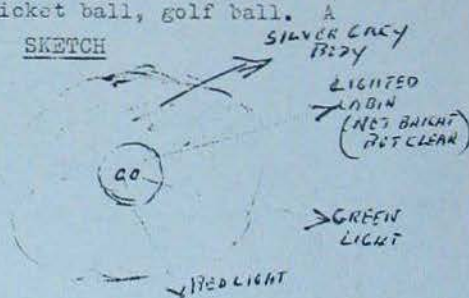 icket ball, golf ball. A
SKETCH
SILVER GREY
BODY
LIGHTED
CABIN
(NOT BRIGHT
BUT CLEAR)
GREEN
LIGHT
RED LIGHT